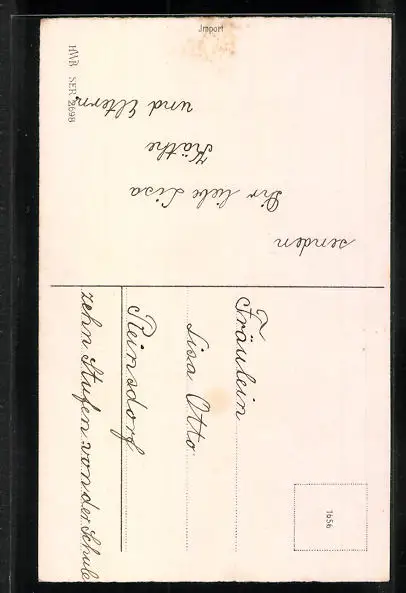 Import
HWB SER 2698
senden
Dir liebe Lisa
Käthe
und Eltern.
Fräulein
Lisa Otto
Reinsdorf
zehn Stufen von der Schule
1656